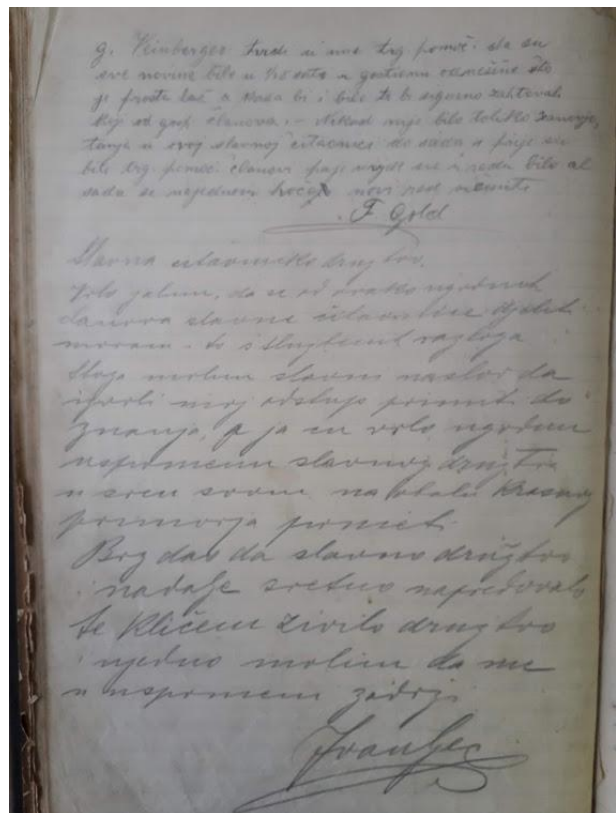 g. Weinberger tvrdi u ime trg. pomoć. da su
sve novine bilo u ½8 sata u gostioni što
je prosta laž a kada bi i bilo to bi sigurno zahtevali
koji od gosp. članova. – Nikad nije bilo toliko
tanja u ovoj slavnoj čitaonici do sada a prije su
bili trg. pomoć. članovi pa je uvjek sve u redu bilo al
sada se najednom hoće novi red učiniti
F Gold
Slavno čitaoničko družtvo.
Vrlo žalim, da se od ovako ugodnih
članova slavne čitaonice djeliti
moram – to iz razloga
Stoga molim slavni naslov da
izvoli moj odstup primiti do
znanja, a ja ću vrlo ugodnu
uspomenu slavnog družtva
u srcu svom na obalu krasnog
primorja ponieti.
Bog dao da slavno družtvo
i nadalje sretno napredovalo
te kličem živilo družtvo
i ujedno molim da me
u uspomeni zadrži.